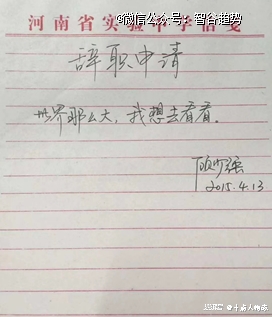 @微信公众号：智谷趋势
河南省实验中学信笺
辞职申请
世界那么大，我想去看看。
顾少强
2015.4.13